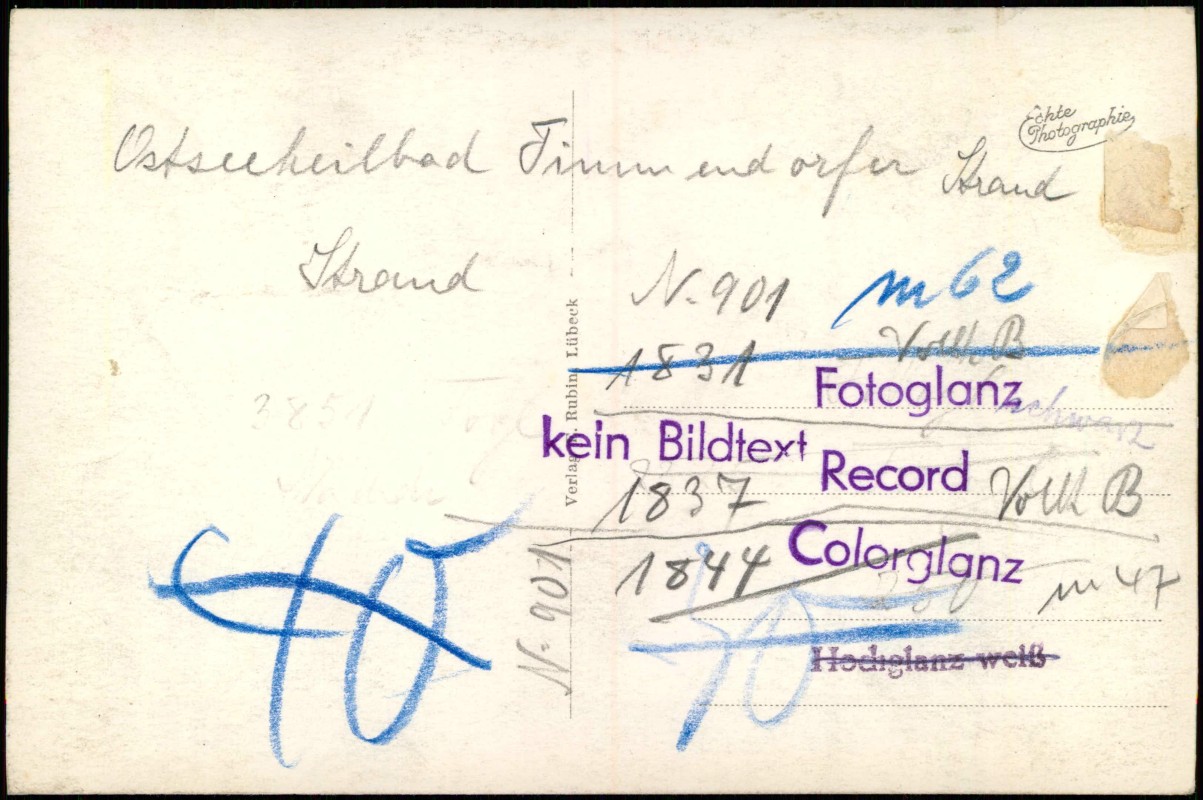 Echte
Photographie
Ostseeheilbad Timmendorfer Strand
Strand
N. 901
m 62
Volk B
1831
Fotoglanz
schwarz
kein Bildtext
Record
1837
Volk B
Colorglanz
1844
m 47
Hochglanz weiß
40
50
3851
N. 901
Rubin, Lübeck